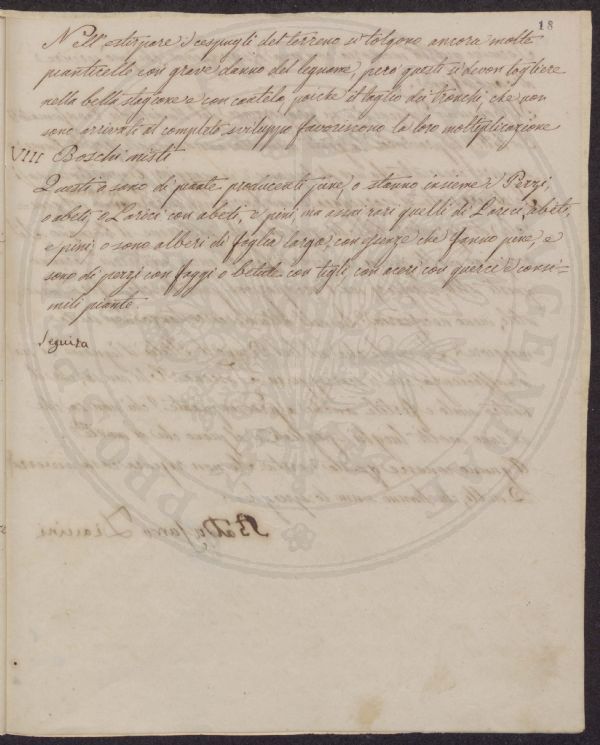 18
Nell' estirpare i cespugli del terreno si tolgono ancora molte
pianticelle con grave danno del legname, però questi si devon togliere
nella bella stagione e con cautela, poiche il taglio dei tronchi, che non
sono arrivati al completo sviluppo favoriscono la loro moltiplicazione
VIII Boschi misti
Questi o sono di piante producenti pine, o stanno insieme i Pezzi,
o abeti, o Larici con abeti, e pini, ma assai rari quelli di Larici, abeti,
e pini: o sono alberi di foglia larga, con quelle che fanno pine, e
sono di pezzi con faggi o betule con tigli con aceri con querci e consi=
mili piante.
Seguita